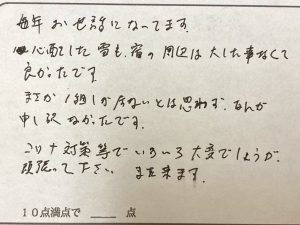 毎年お世話になってます。
心配した雪も、宿の周辺は大した事なくて
良かったです。
まさか1組しか居ないとは思わず、なんか
申し訳なかったです。
コロナ対策等でいろいろ大変でしょうが、
頑張って下さい。また来ます。
10点満点で ____ 点